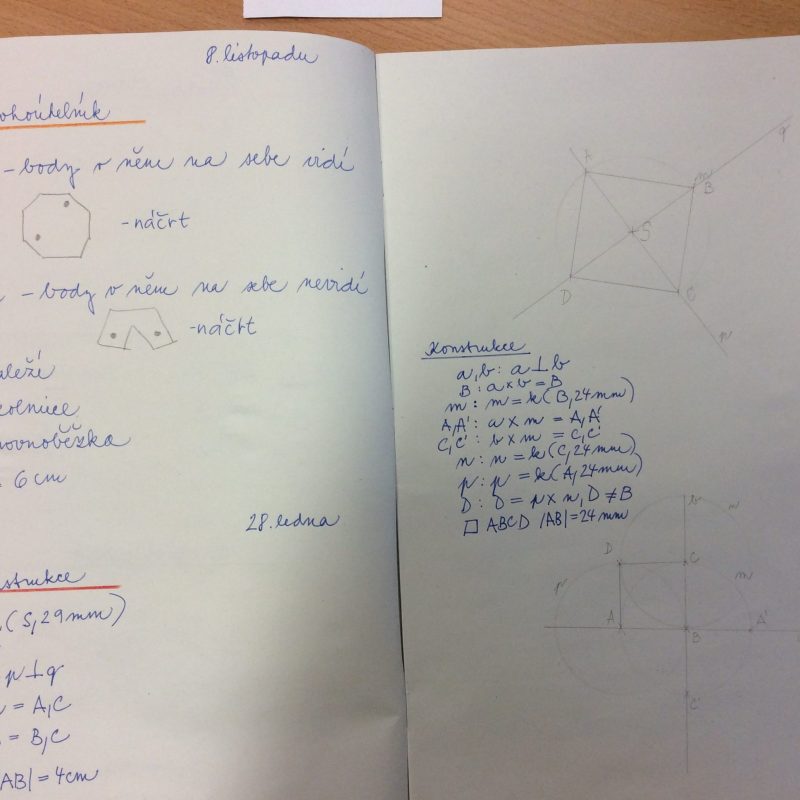 8. listopadu
ohoúhelník
- body v něm na sebe vidí
- náčrt
- body v něm na sebe nevidí
- náčrt
leží
kolmice
rovnoběžka
6 cm
28. ledna
strukce
(S, 29 mm)
p ⊥ q
= A, C
= B, C
AB| = 4 cm
A
m
B
q
S
D
C
p
Konstrukce
a, b: a ⊥ b
B: a × b = B
m: m = k(B, 24 mm)
A, A': a × m = A, A'
C, C': b × m = C, C'
n: n = k(C, 24 mm)
p: p = k(A, 24 mm)
D: D = p × n, D ≠ B
□ ABCD |AB| = 24 mm
b
n
D
C
p
m
A
B
A'
C'